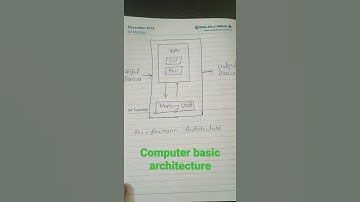 December 2018
03 Monday
CPU
CU
ALU
Input
Devices
Output
Devices
04 Tuesday
Memory Unit
Von-Neumann Architecture
Computer basic
architecture